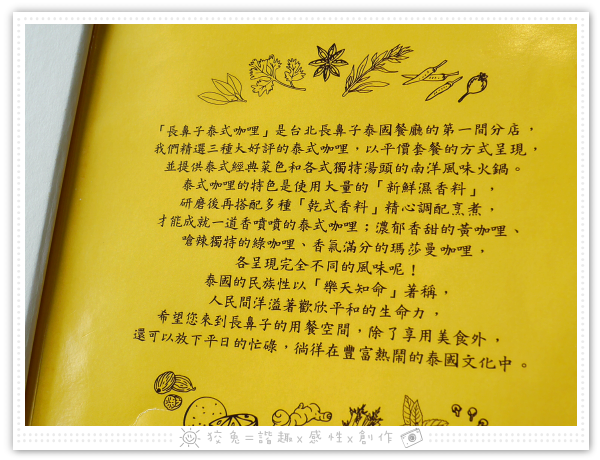 「長鼻子泰式咖哩」是台北長鼻子泰國餐廳的第一間分店，
我們精選三種大好評的泰式咖哩，以平價套餐的方式呈現，
並提供泰式經典菜色和各式獨特湯頭的南洋風味火鍋。
泰式咖哩的特色是使用大量的「新鮮濕香料」，
研磨後再搭配多種「乾式香料」精心調配烹煮，
才能成就一道香噴噴的泰式咖哩；濃郁香甜的黃咖哩、
嗆辣獨特的綠咖哩、香氣滿分的瑪莎曼咖哩，
各呈現完全不同的風味呢！
泰國的民族性以「樂天知命」著稱，
人民間洋溢著歡欣平和的生命力，
希望您來到長鼻子的用餐空間，除了享用美食外，
還可以放下平日的忙碌，徜徉在豐富熱鬧的泰國文化中。
狡兔=諧趣x感性x創作